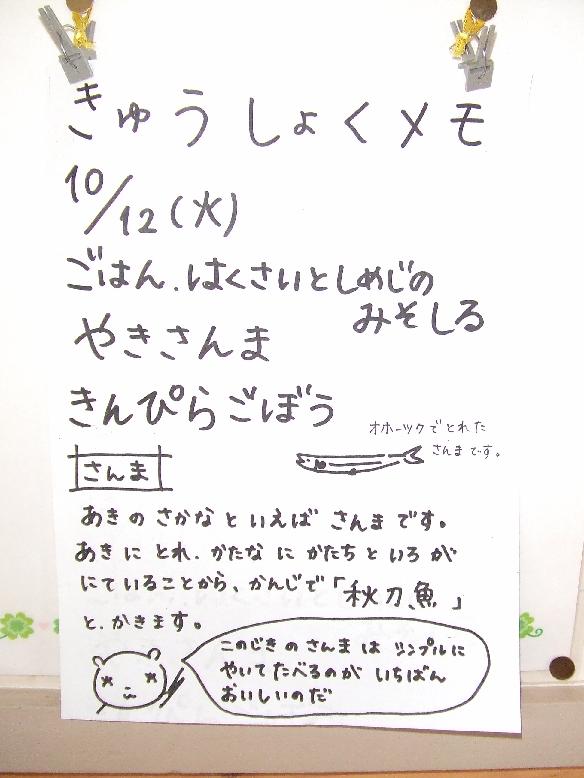 きゅうしょくメモ
10/12(火)
ごはん.はくさいとしめじの
みそしる
やきさんま
きんぴらごぼう
オホーツクでとれた
さんまです。
さんま
あきのさかなといえばさんまです。
あきにとれ.かたなにかたちといろが
にていることから、かんじで「秋刀魚」
と.かきます。
このじきのさんまはシンプルに
やいてたべるのがいちばん
おいしいのだ